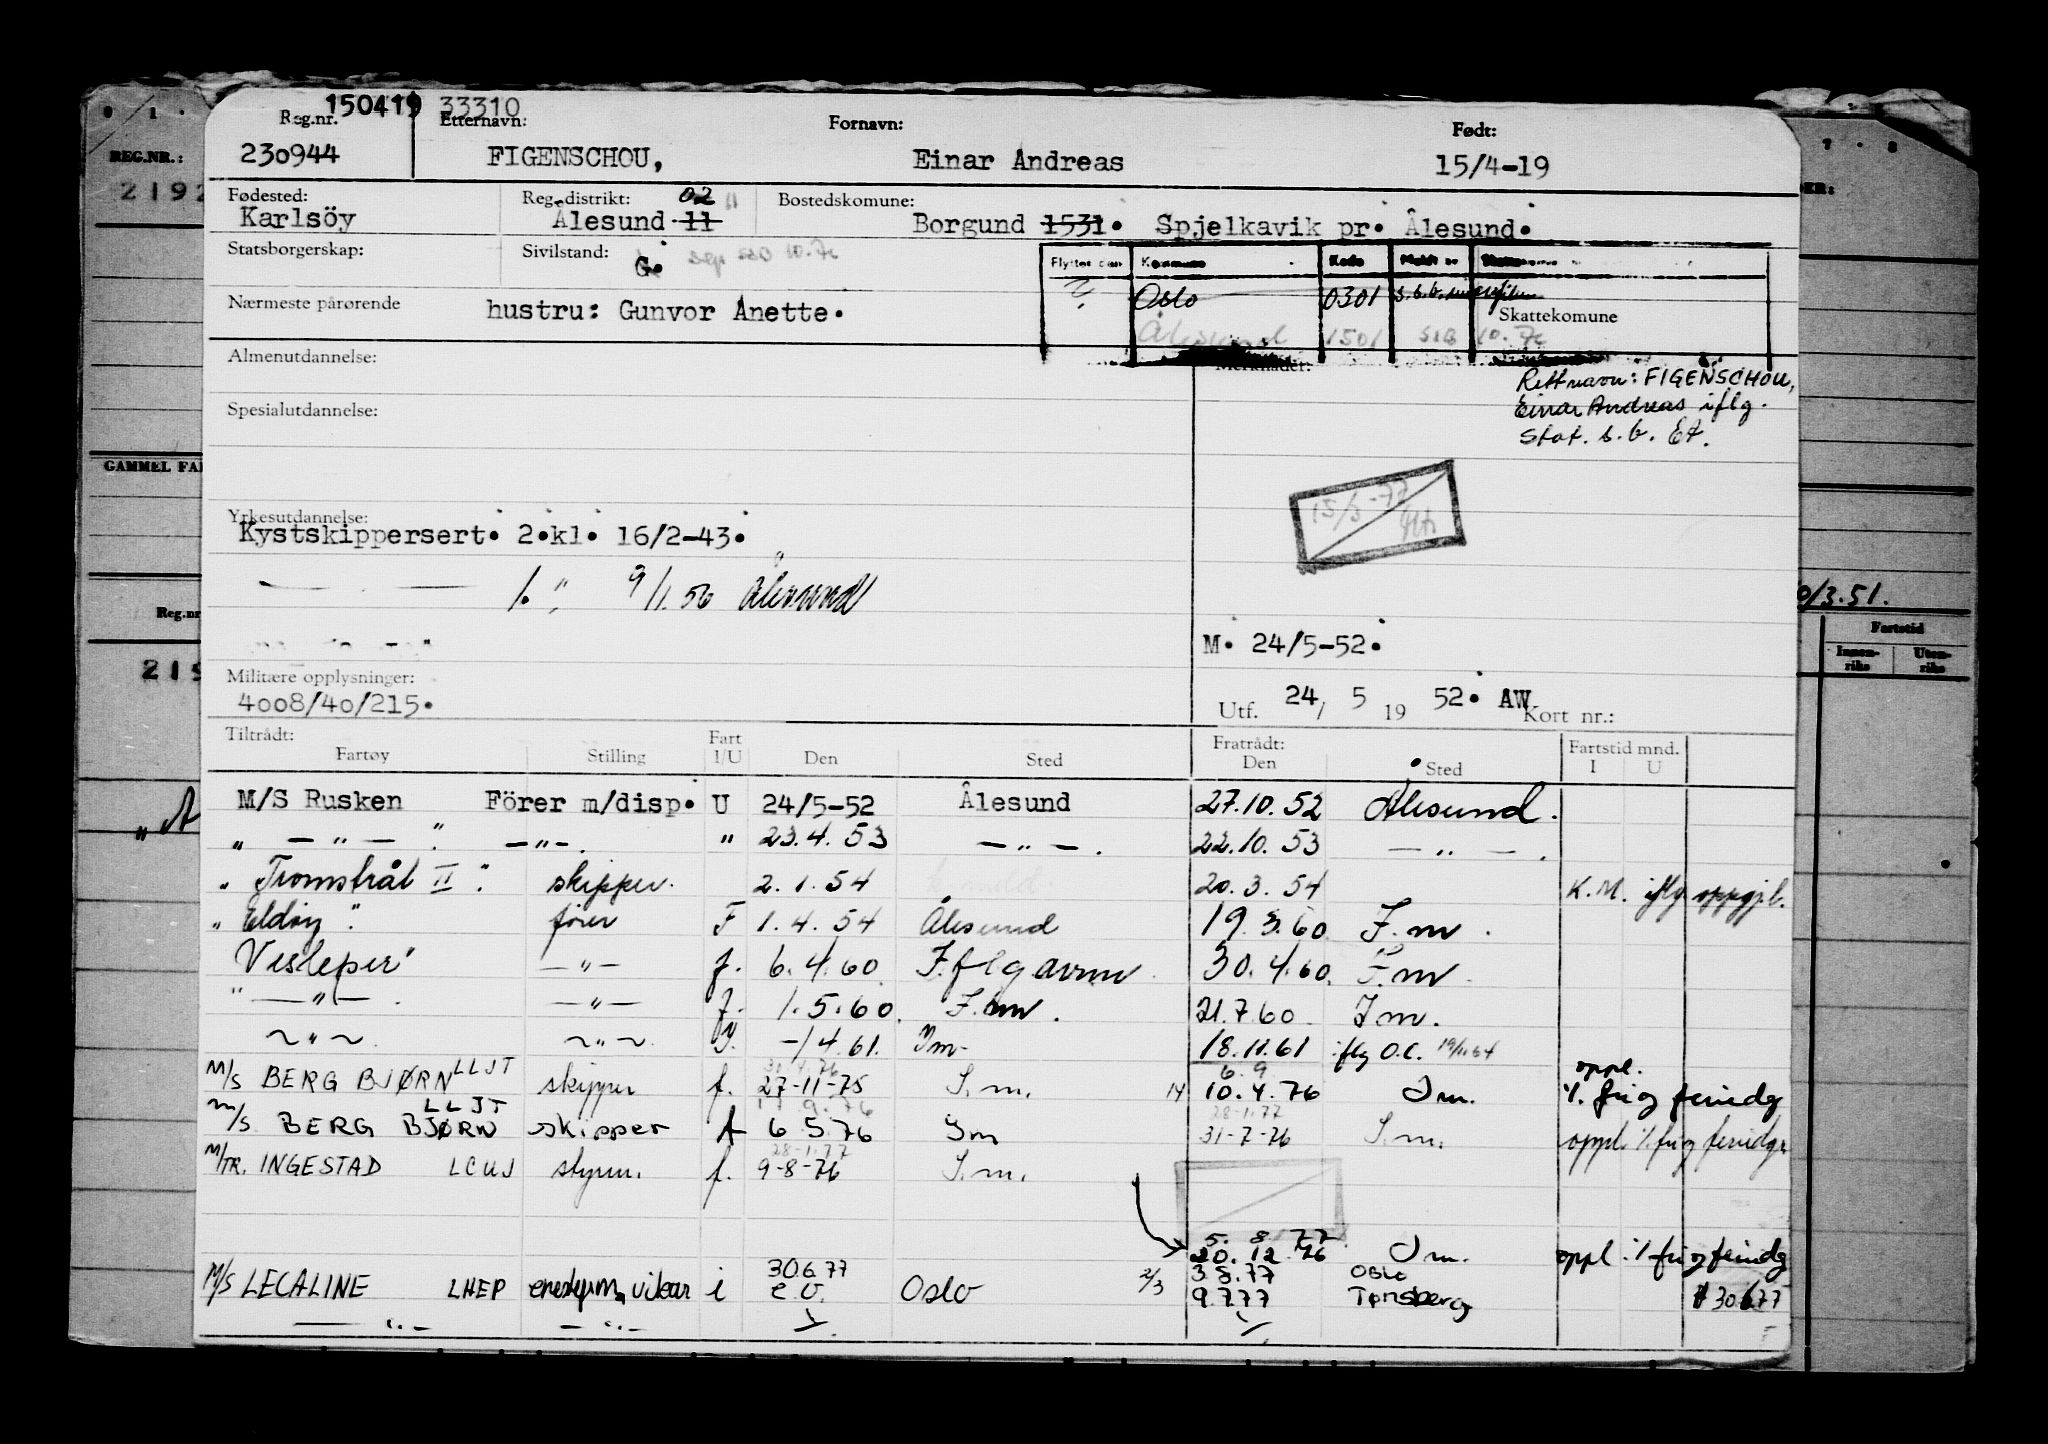 150419 33310
Reg.nr. Etternavn: Fornavn: Født:
230944 FIGENSCHOU, Einar Andreas 15/4-19
Fødested: Reg.distrikt: 02 Bostedskomune:
Karlsöy Ålesund 11 Borgund 1531. Spjelkavik pr. Ålesund.
Statsborgerskap: Sivilstand: G. sep SSB 10.76
Flyttet den Kommune Kode Meldt av
Oslo 0301 s.b.
Nærmeste pårørende hustru: Gunvor Anette. Skattekomune
Ålesund 1501 SSB 10.76
Almenutdannelse: Merknader:
Rett navn: FIGENSCHOU,
Einar Andreas iflg.
Stat. s.b. Et.
Spesialutdannelse:
15/3-77
Yrkesutdannelse:
Kystskippersert. 2.kl. 16/2-43.
— — 1. " 9/1.56 Ålesund
M. 24/5-52.
Militære opplysninger:
4008/40/215.
Utf. 24/ 5 19 52. AW Kort nr.:
Tiltrådt: Fart Fratrådt: Fartstid mnd.
Fartøy Stilling I/U Den Sted Den Sted I U
M/S Rusken Förer m/disp. U 24/5-52 Ålesund 27.10.52 Ålesund.
" — " — " — " — . " 23.4.53 — " — . 22.10.53 — " — .
" Tromstrål II " skipper. 2.1.54 20.3.54 K.M. iflg. oppgj.b.
" Eldøy " fører F 1.4.54 Ålesund 19.3.60 F.m.
Vesleper" — " — f. 6.4.60 I.flg avm. 30.4.60. F.m.
" — " — . — " — f. 1.5.60. F.m. 21.7.60. I m.
~ " ~ ~ " ~ f. -/4.61. I m. 18.11.61 iflg O.C. 19/11 64
31.4.76 6.9. oppl.
M/S BERG BJØRN LLJT skipper f. 27-11-75 I.m. 14 10.4.76 I m. % fri og feriedg
17.9.76 28-1.77
M/S BERG BJØRN LLJT skipper f 6.5.76 I m 31-7-76 I.m. oppl. % fri og feriedg.
28-1.77
M/TR. INGESTAD LCUJ styrm. f. 9-8-76 I.m.
5.8.77
20.12.76 I m. oppl. % fri og feriedg
30.6.77 3.8.77 Oslo
M/S LECALINE LHEP enestyrm. vikar i e.o. Oslo 2/3 9.7.77 Tønsberg 30.6.77
— " — — " —
REG.NR.:
2192
GAMMEL FA
Reg.nr
219
0/3.51.
Fartstid
Innen-
riks
Uten-
riks